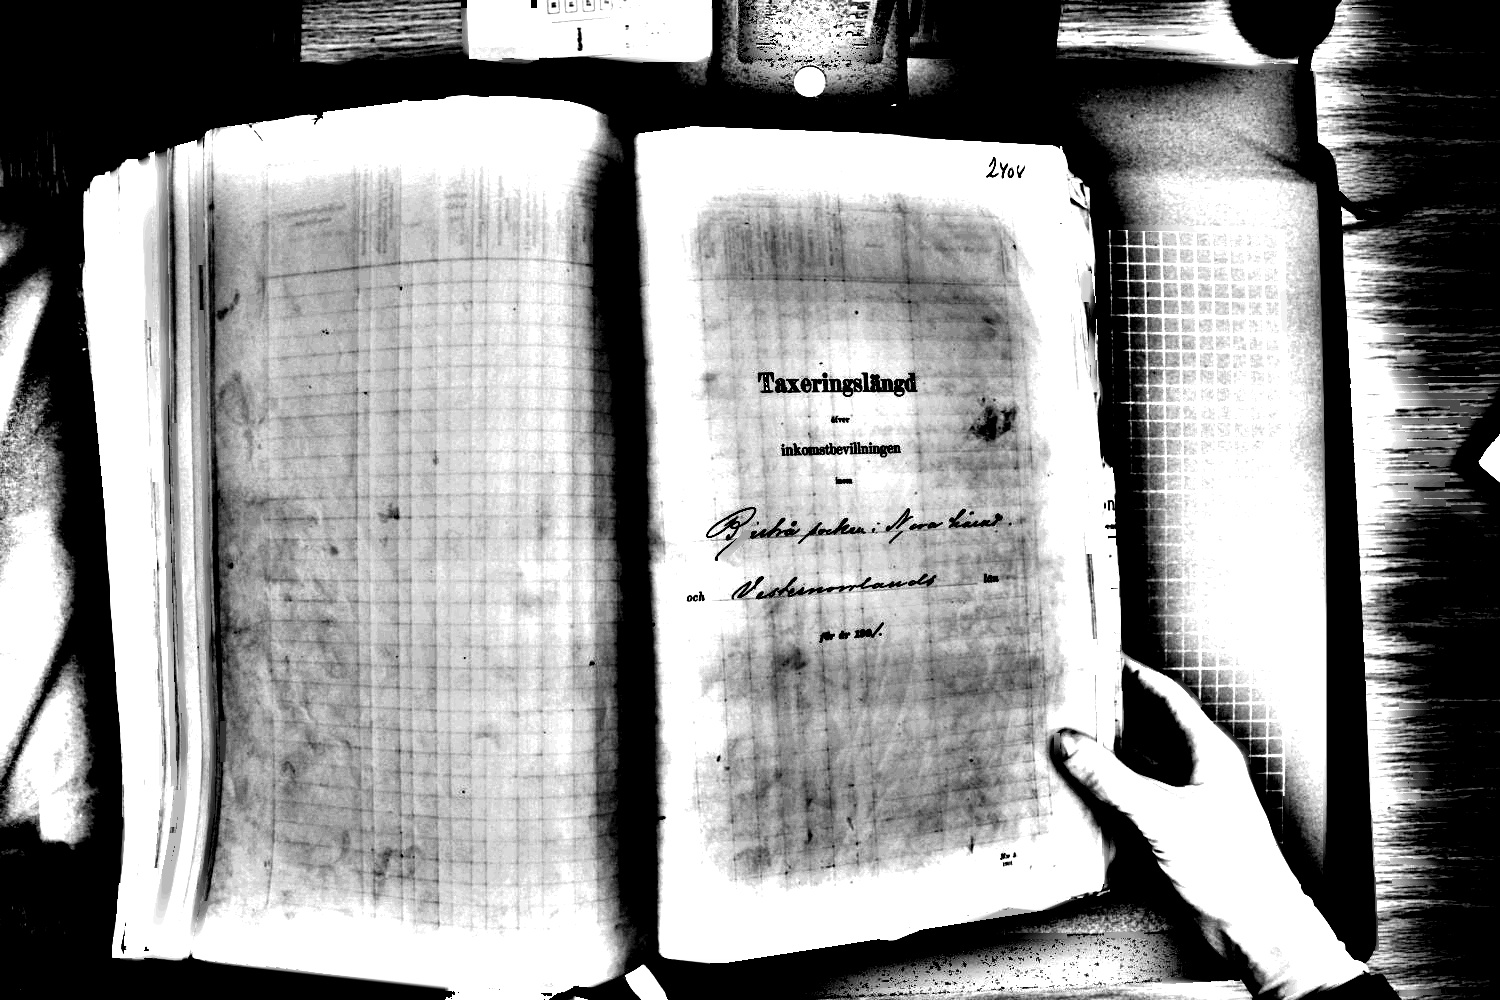 Taxeringslängd
öfver
inkomstbevillningen
inom
Bjertrå socken i Nora tingsl.
och Vesternorrlands län
för år 1901.